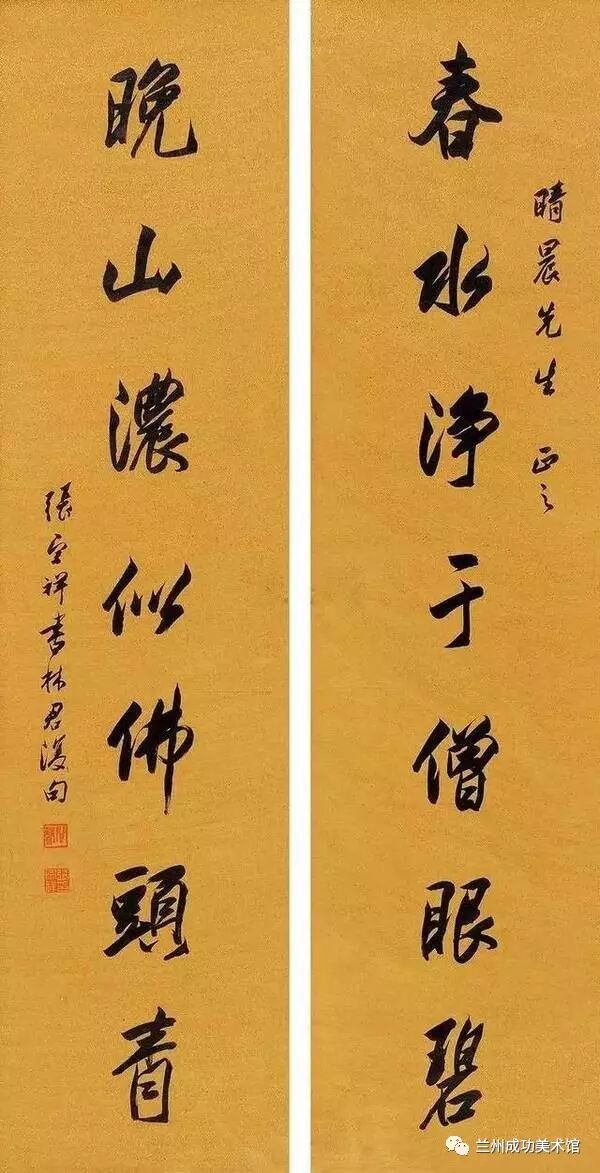 晴晨先生 正之
春水浄于僧眼碧
晚山濃似佛頭青
張 祥書林君復句
兰州成功美术馆